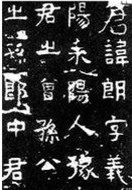 君諱朗字義
陽耒陽人豫
君之曾孫公
之孫郎中君